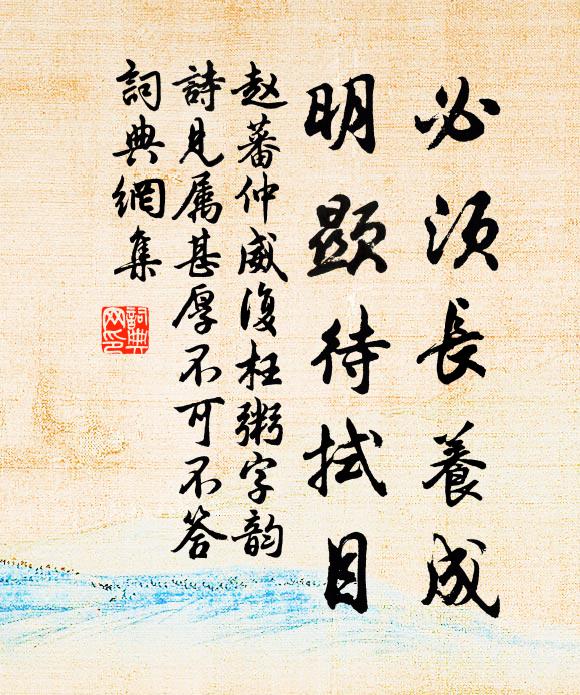 必须長養成
明顯待拭目
赵蕃仲威復枉粥字韵
詩見属甚厚不可不答
詞典網集
詞典
网印